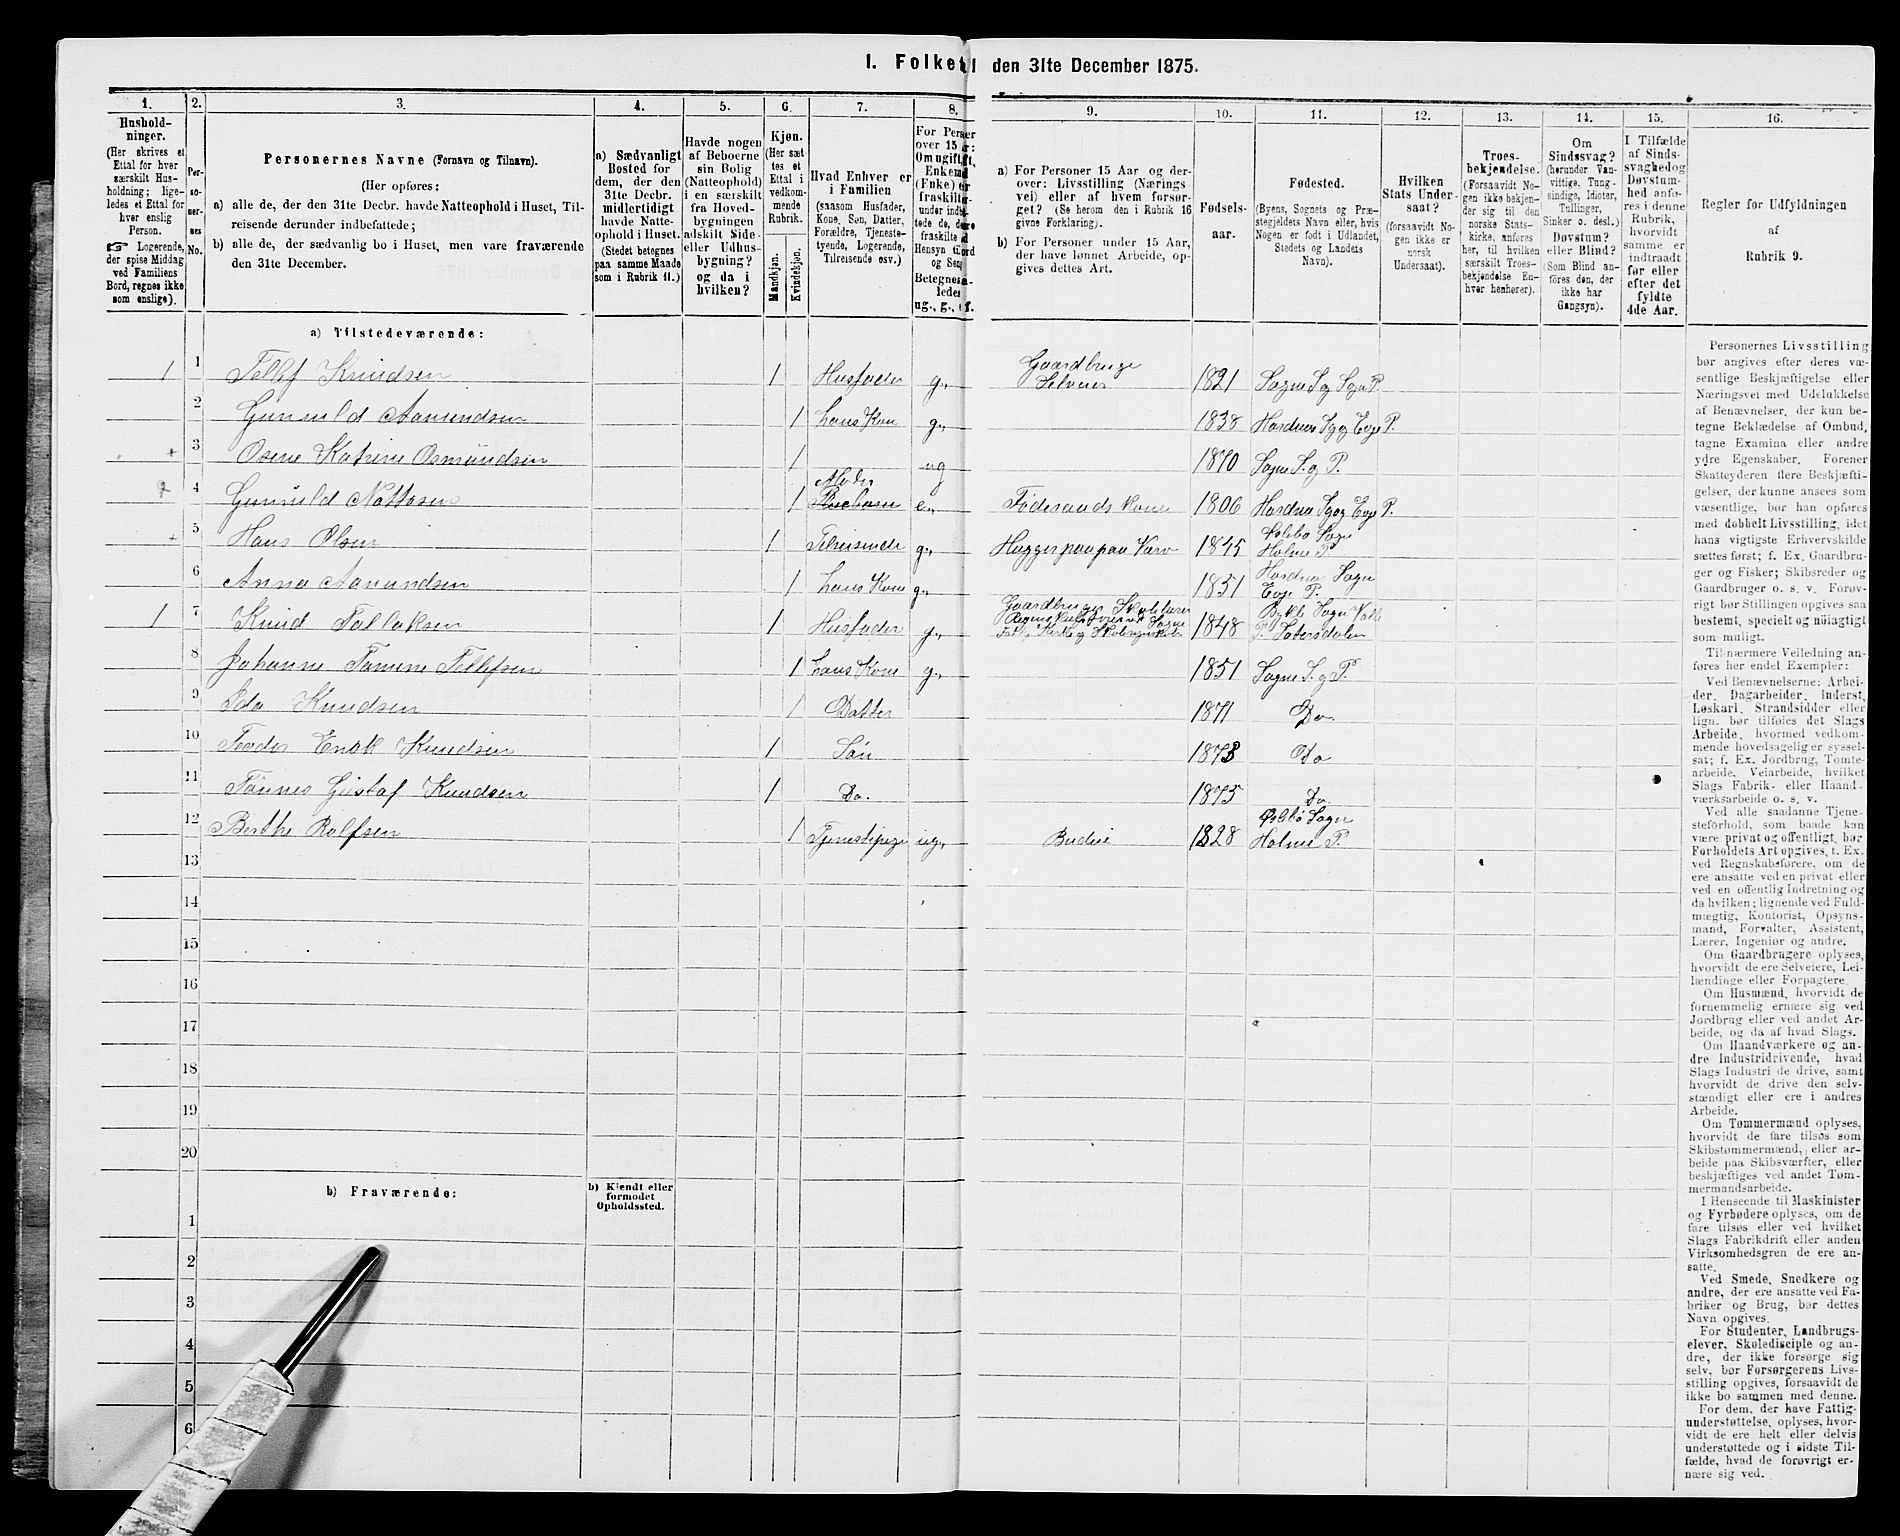 I. Folket
den 31te December 1875.
1.
2.
3.
4.
5.
6.
7.
8.
9.
10.
11.
12.
13.
14.
15.
16.
Hushold-
ninger.
(Her skrives et
Ettal for hver
særskilt Hus-
holdning; lige-
ledes et Ettal for
hver enslig
Person.
☞ Logerende,
der spise Middag
ved Familiens
Bord, regnes ikke
som enslige).
Per-
so-
ner-
nes
No.
Personernes Navne (Fornavn og Tilnavn).
(Her opføres:
a) alle de, der den 31te Decbr. havde Natteophold i Huset, Til-
reisende derunder indbefattede;
b) alle de, der sædvanlig bo i Huset, men vare fraværende
den 31te December.
a) Sædvanligt
Bosted for
dem, der den
31te Decbr.
midlertidigt
havde Natte-
ophold i Huset.
(Stedet betegnes
paa samme Maade
som i Rubrik 11.)
Havde nogen
af Beboerne
sin Bolig
(Natteophold)
i en særskilt
fra Hoved-
bygningen
adskilt Side-
eller Udhus-
bygning?
og da i
hvilken?
Kjøn.
(Her sæt-
tes et
Ettal i
vedkom-
mende
Rubrik.
Mandkjøn.
Kvindekjøn.
Hvad Enhver er
i Familien
(saasom Husfader,
Kone, Søn, Datter,
Forældre, Tjeneste-
tyende, Logerende,
Tilreisende osv.)
For Person
over 15
Om ugift,
Enkem
(Fnke)
fraskilt
under indb
tede de,
fraskilte
Hensyn til
og Seng
Betegnes
ledes
ug., g.,
f.
a) For Personer 15 Aar og der-
over: Livsstilling (Nærings
vei) eller af hvem forsør-
get? (Se herom den i Rubrik 16
givne Forklaring).
b) For Personer under 15 Aar,
der have lønnet Arbeide, op-
gives dettes Art.
Fødsels-
aar.
Fødested.
(Byens, Sognets og Præ-
stegjeldets Navn eller, hvis
Nogen er født i Udlandet,
Stedets og Landets
Navn).
Hvilken
Stats Under-
saat?
(forsaavidt No-
gen ikke er
norsk
Undersaat).
Troes-
bekjendelse.
(Forsaavidt No-
gen ikke bekjen-
der sig til den
norske Stats-
kirke, anføres
her, til hvilken
særskilt Troes-
bekjendelse En-
hver henhører).
Om
Sindssvag?
(herunder Van-
vittige, Tung-
sindige, Idioter,
Tullinger,
Sinker o. desl.)
Døvstum?
eller Blind?
(Som Blind an-
føres den, der
ikke har
Gangsyn).
I Tilfælde
af Sinds-
svaghed og
Døvstum-
hed anfø-
res i denne
Rubrik,
hvorvidt
samme er
indtraadt
før eller
efter det
fyldte
4de Aar.
Regler for Udfyldningen
af
Rubrik 9.
a) Tilstedeværende:
1 1 Tellef Knudsen 1 Husfader g., Gaardbruger Selveier 1821 Sogne S og Sogn P.
2 Gunvuld Aamundsen 1 hans Kone g., 1838 Hordnes S og Evje P.
3 Osene Katrine Osmundsen 1 ug 1870 Sogne S. og P.
4 Gunvuld Nottesen 1 Moder e., Føderaads Kone 1806 Hordnes S og Evje P.
5 Hans Olsen 1 Tilreisende g., 1845 Øslebø Sogn Holme P
6 Anna Aamundsen 1 hans Kone g., 1851 Hordnes Sogn Evje P.
1 7 Knud Tallaksen 1 Husfader g., Gaardbruger Skolelærer 1848 Bykle Sogn Valle P. Sætersdalen
8 Johanne Tomine Tellefsen 1 hans Kone g., 1851 Sogne S. og P.
9 Ida Knudsen 1 Datter 1871 Do
10 Teodor Enok Knudsen 1 Søn 1873 Do
11 Tønnes Gustaf Knudsen 1 Do. 1875 Do
12 Berthe Rolfsen 1 Tjenestepige ug., Budeie 1828 Øslebø Sogn Holme P.
13
14
15
16
17
18
19
20
b) Fraværende:
b) Kjendt eller
formodet
Opholdssted.
1
2
3
4
5
6
Personernes Livsstilling
bør angives efter deres væ-
sentlige Beskjæftigelse eller
Næringsvei med Udelukkelse
af Benævnelser, der kun be-
tegne Beklædelse af Ombud,
tagne Examina eller andre
ydre Egenskaber. Forener
Skatteyderen flere Beskjæfti-
gelser, der kunne ansees som
væsentlige, bør han opføres
med dobbelt Livsstilling, idet
hans vigtigste Erhvervskilde
sættes først; f. Ex. Gaardbru-
ger og Fisker; Skibsreder og
Gaardbruger o. s. v. Forøv-
rigt bør Stillingen opgives saa
bestemt, specielt og nøiagtigt
som muligt.
Til nærmere Veiledning an-
føres her endel Exempler:
Ved Benævnelserne: Arbei-
der, Dagarbeider, Inderst,
Løskarl, Strandsidder eller
lign. bør tilføies det Slags
Arbeide, hvormed vedkom-
mende hovedsagelig er syssel-
sat; f. Ex. Jordbrug, Tomte-
arbeide, Veiarbeide, hvilket
Slags Fabrik- eller Haand
værksarbeide o. s. v.
Ved alle saadanne Tjene-
steforhold, som baade kan
være privat og offentligt, bør
Forholdets Art opgives, t. Ex.
ved Regnskabsførere, om de
ere ansatte ved en privat eller
ved en offentlig Indretning og
da hvilken; lignende ved Fuld-
mægtig, Kontorist, Opsyns-
mand, Forvalter, Assistent,
Lærer, Ingeniør og andre.
Om Gaardbrugere oplyses,
hvorvidt de ere Selveiere, Lei-
lændinge eller Forpagtere.
Om Husmænd, hvorvidt de
fornemmelig ernære sig ved
Jordbrug eller ved andet Ar-
beide, og da af hvad Slags.
Om Haandværkere og an-
dre Industridrivende, hvad
Slags Industri de drive, samt
hvorvidt de drive den selv-
stændigt eller ere i andres
Arbeide.
Om Tømmermænd oplyses,
hvorvidt de fare tilsøs som
Skibstømmermænd, eller ar-
beide paa Skibsværfter, eller
beskjæftiges ved andet Tøm-
mermandsarbeide.
I Henseende til Maskinister
og Fyrbødere oplyses, om de
fare tilsøs eller ved hvilket
Slags Fabrikdrift eller anden
Virksomhedsgren de ere an-
satte.
Ved Smede, Snedkere og
andre, der ere ansatte ved Fa-
briker og Brug, bør dettes
Navn opgives.
For Studenter, Landbrugs-
elever, Skoledisciple og an-
dre, der ikke forsørge sig
selv, bør Forsørgerens Livs-
stilling opgives, forsaavidt de
ikke bo sammen med denne.
For dem, der have Fattig-
understøttelse, oplyses, hvor-
vidt de ere helt eller delvis
understøttede og i sidste Til-
fælde, hvad de forøvrigt er-
nære sig ved.